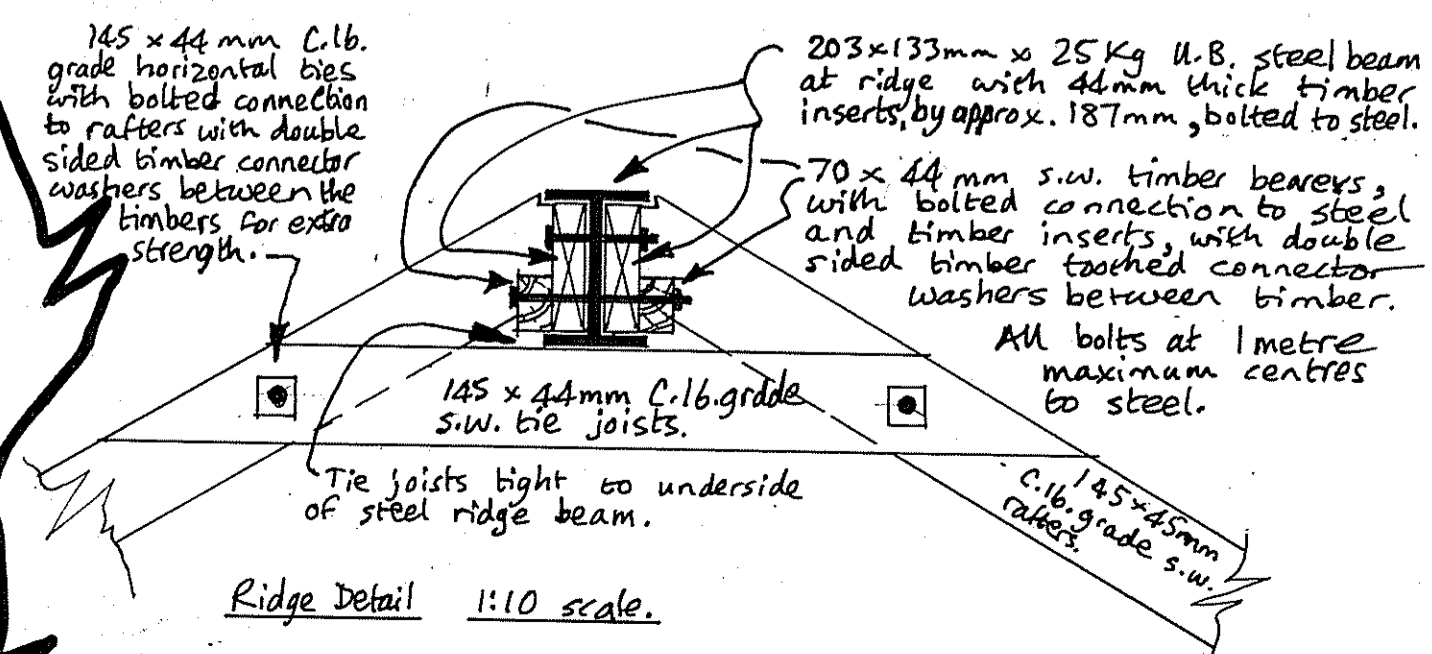 145 x 44 mm C.16.
grade horizontal ties
with bolted connection
to rafters with double
sided timber connector
washers between the
timbers for extra
strength.
203x133mm x 25 Kg U.B. steel beam
at ridge with 44mm thick timber
inserts, by approx. 187mm, bolted to steel.
70 x 44 mm s.w. timber bearers,
with bolted connection to steel
and timber inserts, with double
sided timber toothed connector
washers between timber.
All bolts at 1 metre
maximum centres
to steel.
145 x 44mm C.16.grade
s.w. tie joists.
Tie joists tight to underside
of steel ridge beam.
145x45mm
C.16.grade s.w.
rafters.
Ridge Detail 1:10 scale.